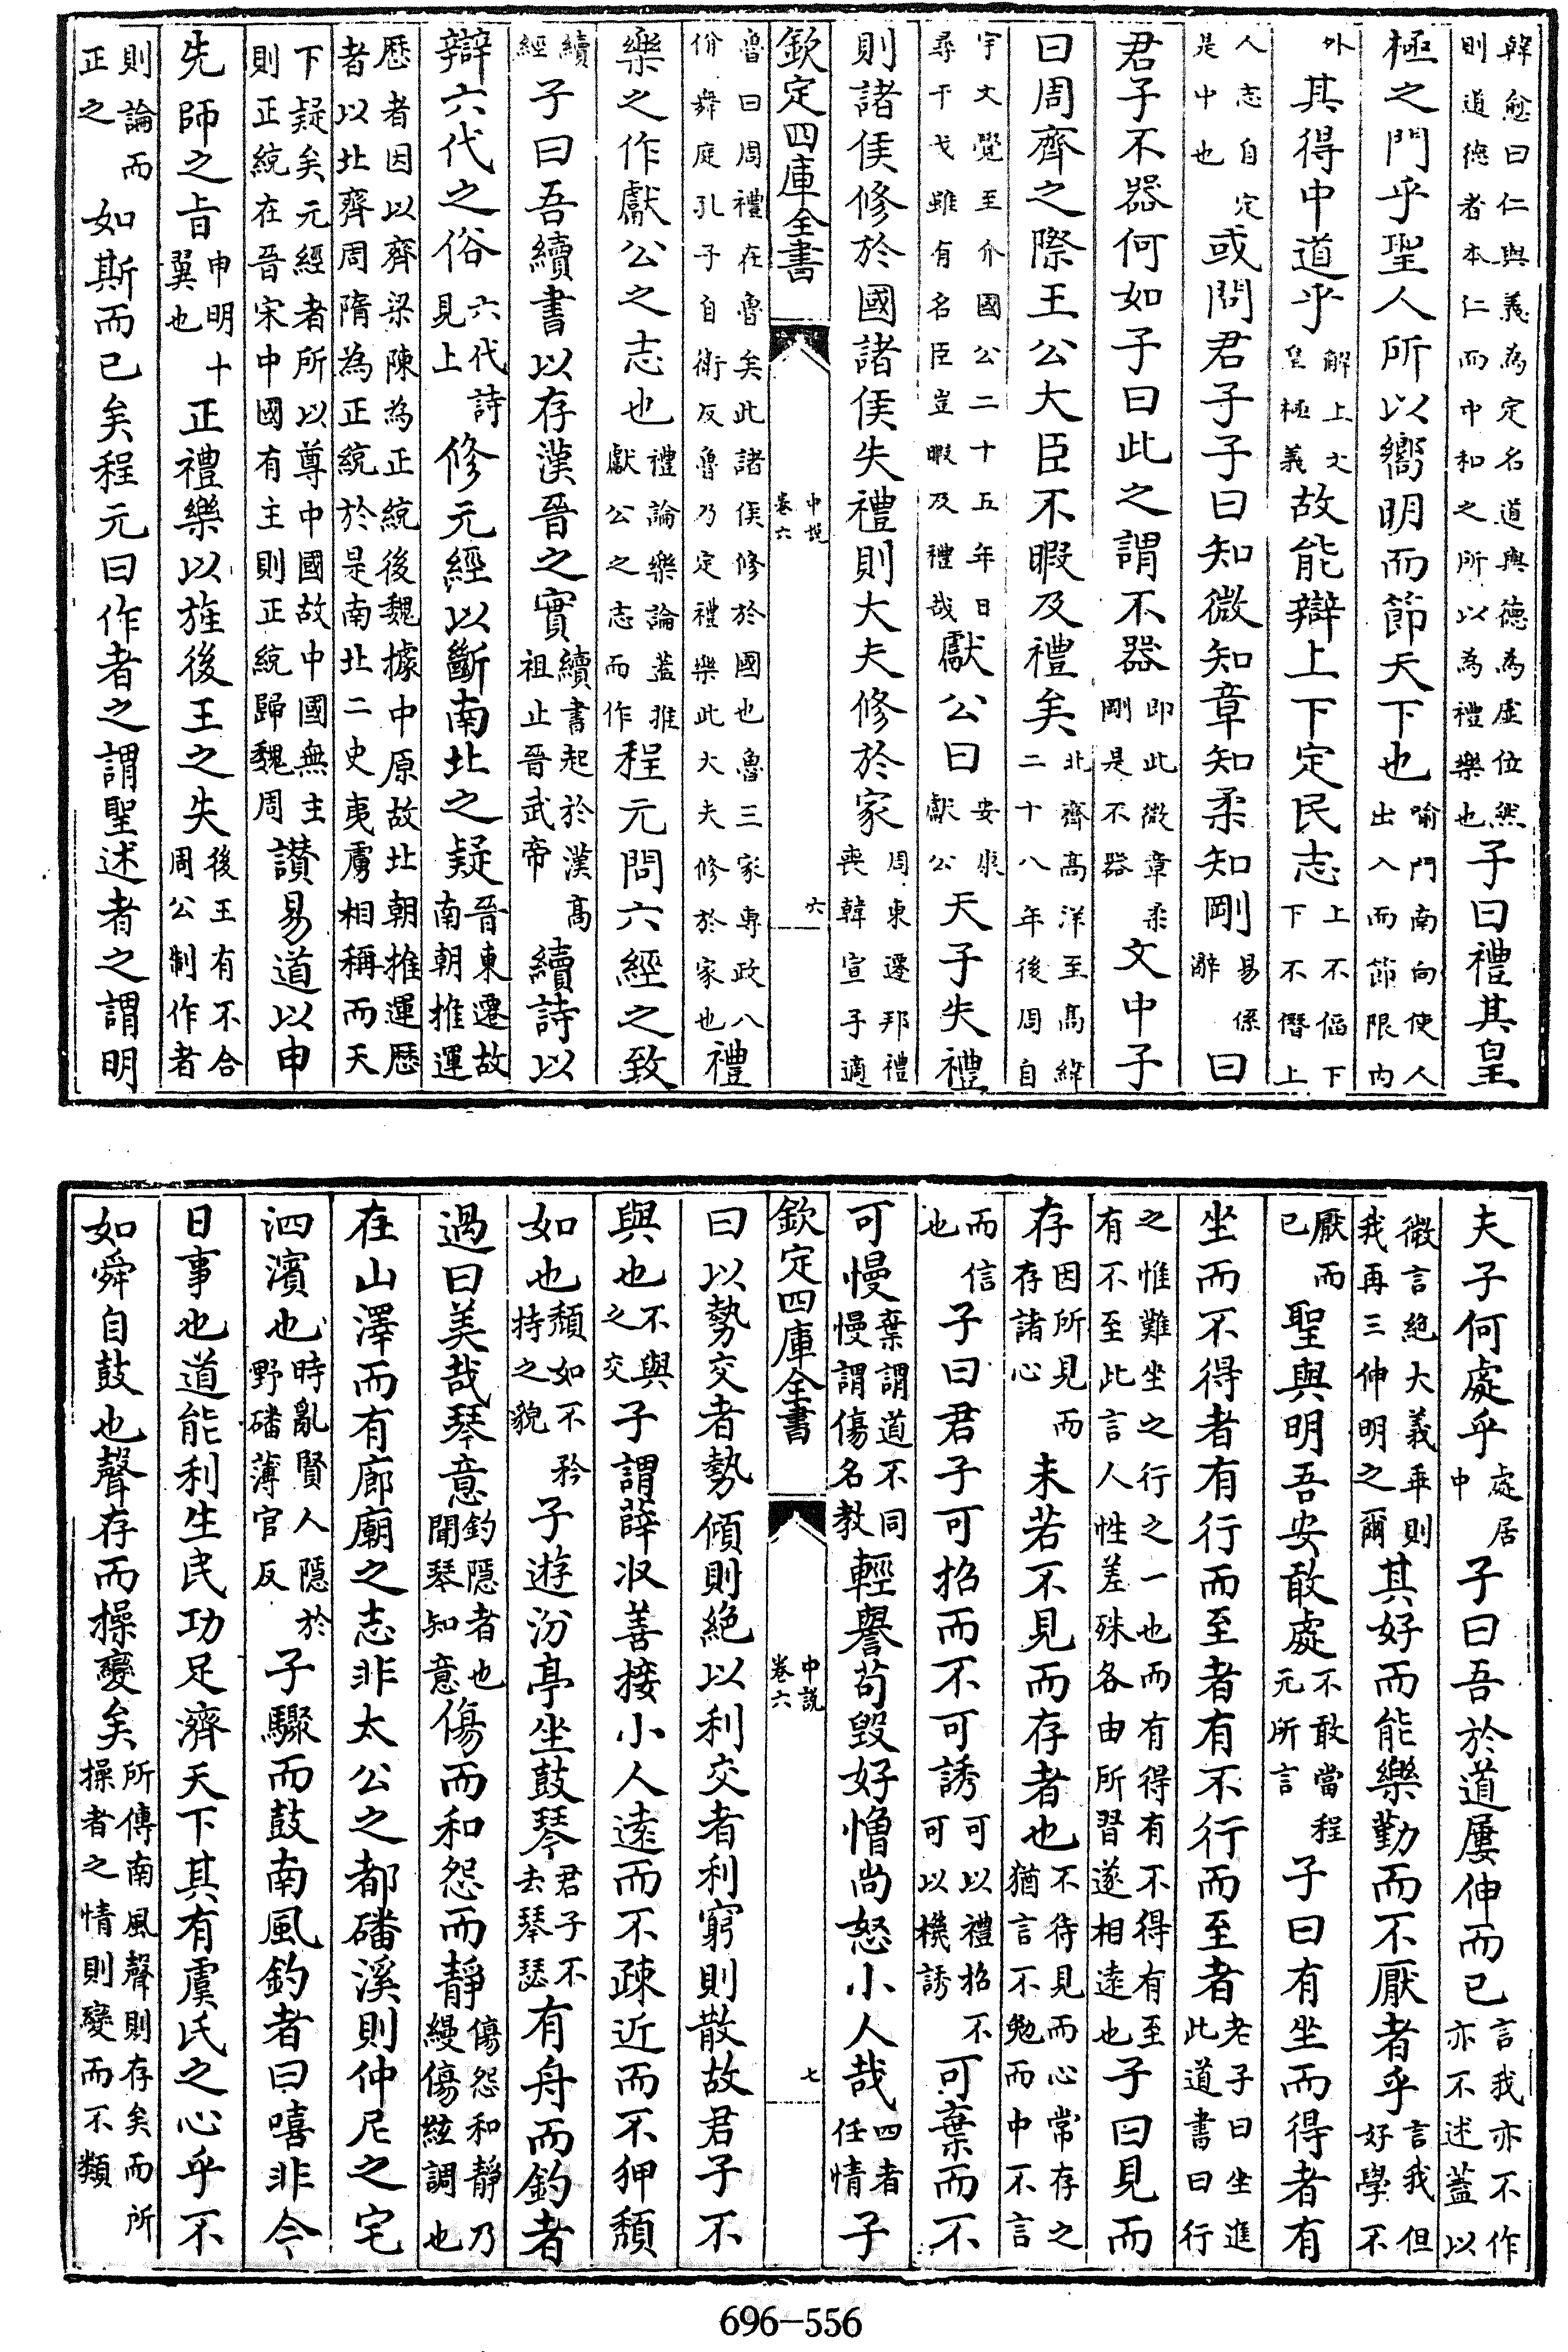 韓愈曰仁與義為定名道與德為虛位然則道德者本仁而中和之所以為禮樂也子曰禮其皇
極之門乎聖人所以嚮明而節天下也喻門南向使人出入而節限内
外其得中道乎解上文皇極義故能辯上下定民志上不偪下下不僭上
人志自定是中也或問君子子曰知微知章知柔知剛易係辭曰
君子不器何如子曰此之謂不器即此微章柔剛是不器文中子
曰周齊之際王公大臣不暇及禮矣北齊高洋至高緯二十八年後周自
宇文覺至介國公二十五年日尋干戈雖有名臣豈暇及禮哉獻公曰安康獻公天子失禮
則諸侯修於國諸侯失禮則大夫修於家周東遷邦禮喪韓宣子適
欽定四庫全書 中說卷六 六
魯曰周禮在魯矣此諸侯修於國也魯三家專政八佾舞庭孔子自衛反魯乃定禮樂此大夫修於家也禮
樂之作獻公之志也禮論樂論蓋推獻公之志而作程元問六經之致
續經子曰吾續書以存漢晉之實續書起於漢高祖止晉武帝續詩以
辯六代之俗六代詩見上修元經以斷南北之疑晉東遷故南朝推運
歷者因以齊梁陳為正統後魏據中原故北朝推運歷者以北齊周隋為正統於是南北二史夷虜相稱而天
下疑矣元經者所以尊中國故中國無主則正統在晉宋中國有主則正統歸魏周讃易道以申
先師之旨申明十翼也正禮樂以旌後王之失後王有不合周公制作者
則論而正之如斯而已矣程元曰作者之謂聖述者之謂明
夫子何處乎處居中子曰吾於道屢伸而已言我亦不作亦不述蓋以
微言絶大義乖則我再三伸明之爾其好而能樂勤而不厭者乎言我但好學不
厭而已聖與明吾安敢處不敢當程元所言子曰有坐而得者有
坐而不得者有行而至者有不行而至者老子曰坐進此道書曰行
之惟難坐之行之一也而有得有不得有至有不至此言人性差殊各由所習遂相遠也子曰見而
存因所見而存諸心未若不見而存者也不待見而心常存之猶言不勉而中不言
而信也子曰君子可招而不可誘可以禮招不可以機誘可棄而不
可慢棄謂道不同慢謂傷名教輕譽苟毀好憎尚怒小人哉四者任情子
欽定四庫全書 中說卷六 七
曰以勢交者勢傾則絶以利交者利窮則散故君子不
與也不與之交子謂薛收善接小人遠而不疎近而不狎頽
如也頽如不矜持之貌子遊汾亭坐鼓琴君子不去琴瑟有舟而釣者
過曰美哉琴意釣隱者也聞琴知意傷而和怨而靜傷怨和靜乃縵傷絃調也
在山澤而有廊廟之志非太公之都磻溪則仲尼之宅
泗濱也時亂賢人隱於野磻薄官反子驟而鼓南風釣者曰嘻非今
日事也道能利生民功足濟天下其有虞氏之心乎不
如舜自鼓也聲存而操變矣所傳南風聲則存矣而所操者之情則變而不類
696–556